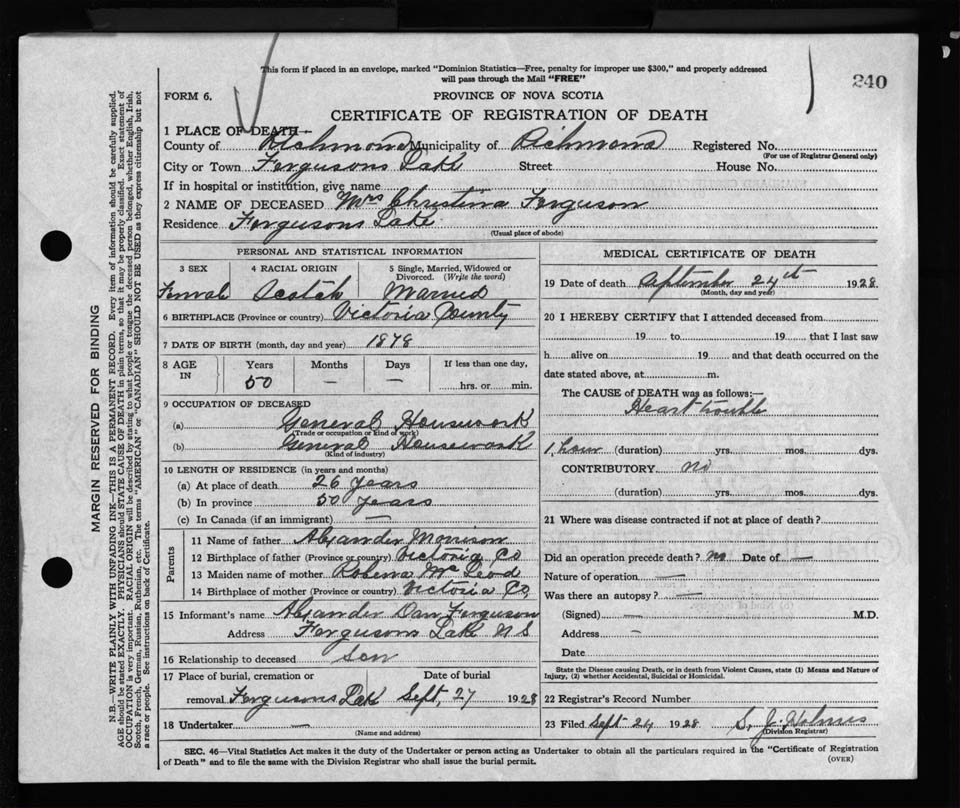 This form if placed in an envelope, marked "Dominion Statistics—Free, penalty for improper use $300," and properly addressed
will pass through the Mail "FREE"
240
FORM 6.
PROVINCE OF NOVA SCOTIA
CERTIFICATE OF REGISTRATION OF DEATH
1 PLACE OF DEATH—
County of Richmond Municipality of Richmond Registered No.
(For use of Registrar General only)
City or Town Fergusons Lake Street House No.
If in hospital or institution, give name
2 NAME OF DECEASED Mrs Christina Ferguson
Residence Fergusons Lake
(Usual place of abode)
PERSONAL AND STATISTICAL INFORMATION
3 SEX 4 RACIAL ORIGIN 5 Single, Married, Widowed or Divorced. (Write the word)
Female Scotch Married
6 BIRTHPLACE (Province or country) Victoria County
7 DATE OF BIRTH (month, day and year) 1878
8 AGE IN Years Months Days If less than one day,
50 — — hrs. or min.
9 OCCUPATION OF DECEASED
(a) General Housework
(Trade or occupation or kind of work)
(b) General Housework
(Kind of industry)
10 LENGTH OF RESIDENCE (in years and months)
(a) At place of death 26 years
(b) In province 50 years
(c) In Canada (if an immigrant) —
Parents
11 Name of father Alexander Morrison
12 Birthplace of father (Province or country) Victoria Co
13 Maiden name of mother McLeod
14 Birthplace of mother (Province or country) Victoria Co,
15 Informant's name Alexander Dan Ferguson
Address Fergusons Lake N S
16 Relationship to deceased Son
17 Place of burial, cremation or removal Date of burial
Fergusons Lake Sept, 27 1928
18 Undertaker —
(Name and address)
MEDICAL CERTIFICATE OF DEATH
19 Date of death September 24th 1928
(Month, day and year)
20 I HEREBY CERTIFY that I attended deceased from
19 to 19 that I last saw
h alive on 19 and that death occurred on the
date stated above, at m.
The CAUSE of DEATH was as follows:—
Heart trouble
1 hour (duration) yrs. mos. dys.
CONTRIBUTORY no
(duration) yrs. mos. dys.
21 Where was disease contracted if not at place of death?
Did an operation precede death? no Date of —
Nature of operation —
Was there an autopsy? —
(Signed) — M.D.
Address —
Date
State the Disease causing Death, or in death from Violent Causes, state (1) Means and Nature of
Injury, (2) whether Accidental, Suicidal or Homicidal.
22 Registrar's Record Number
23 Filed Sept 24 1928 S. J. Holmes
(Division Registrar)
SEC. 46—Vital Statistics Act makes it the duty of the Undertaker or person acting as Undertaker to obtain all the particulars required in the "Certificate of Registration
of Death" and to file the same with the Division Registrar who shall issue the burial permit.
(OVER)
MARGIN RESERVED FOR BINDING
N.B.—WRITE PLAINLY WITH UNFADING INK—THIS IS A PERMANENT RECORD. Every item of information should be carefully supplied.
AGE should be stated EXACTLY. PHYSICIANS should STATE CAUSE OF DEATH in plain terms, so that it may be properly classified. Exact statement of
OCCUPATION is very important. RACIAL ORIGIN will be described by stating to what people or tongue the deceased person belonged, whether English, Irish,
Scotch, French, German, Russian, Ruthenian, etc. The terms "AMERICAN" or "CANADIAN" SHOULD NOT BE USED as they express citizenship but not
a race or people. See instructions on back of Certificate.